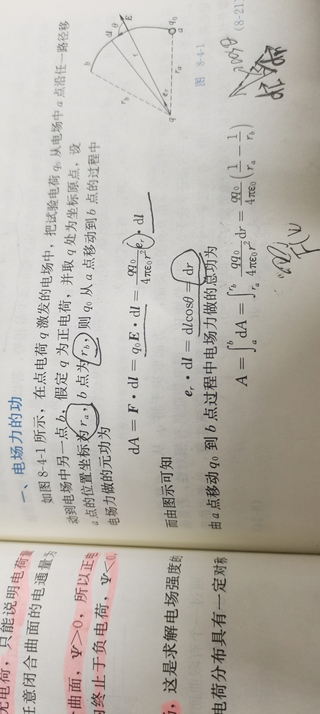 一、电场力的功
如图 8-4-1 所示，在点电荷 q 激发的电场中，把试验电荷 q₀ 从电场中 a 点沿任一路径移
动到电场中另一点 b，假定 q 为正电荷，并取 q 处为坐标原点，设
a 点的位置坐标为 rₐ，b 点为 r_b，则 q₀ 从 a 点移动到 b 点的过程中
电场力做的元功为
dA = F · dl = q₀E · dl = qq₀/4πε₀r² eᵣ · dl
而由图示可知
eᵣ · dl = dlcosθ = dr
由 a 点移动 q₀ 到 b 点过程中电场力做的总功为
A = ∫ₐᵇ dA = ∫_{rₐ}^{r_b} qq₀/4πε₀r² dr = qq₀/4πε₀ (1/rₐ − 1/r_b)
(8-21
图 8-4-1
dl
θ
E
q₀
a
b
r
rₐ
r_b
eᵣ
q
无电荷，只能说明电荷
任意闭合曲面的电通量为
曲面，Ψ>0，所以正电
终止于负电荷，Ψ<0，
，这是求解电场强度的
电荷分布具有一定对称